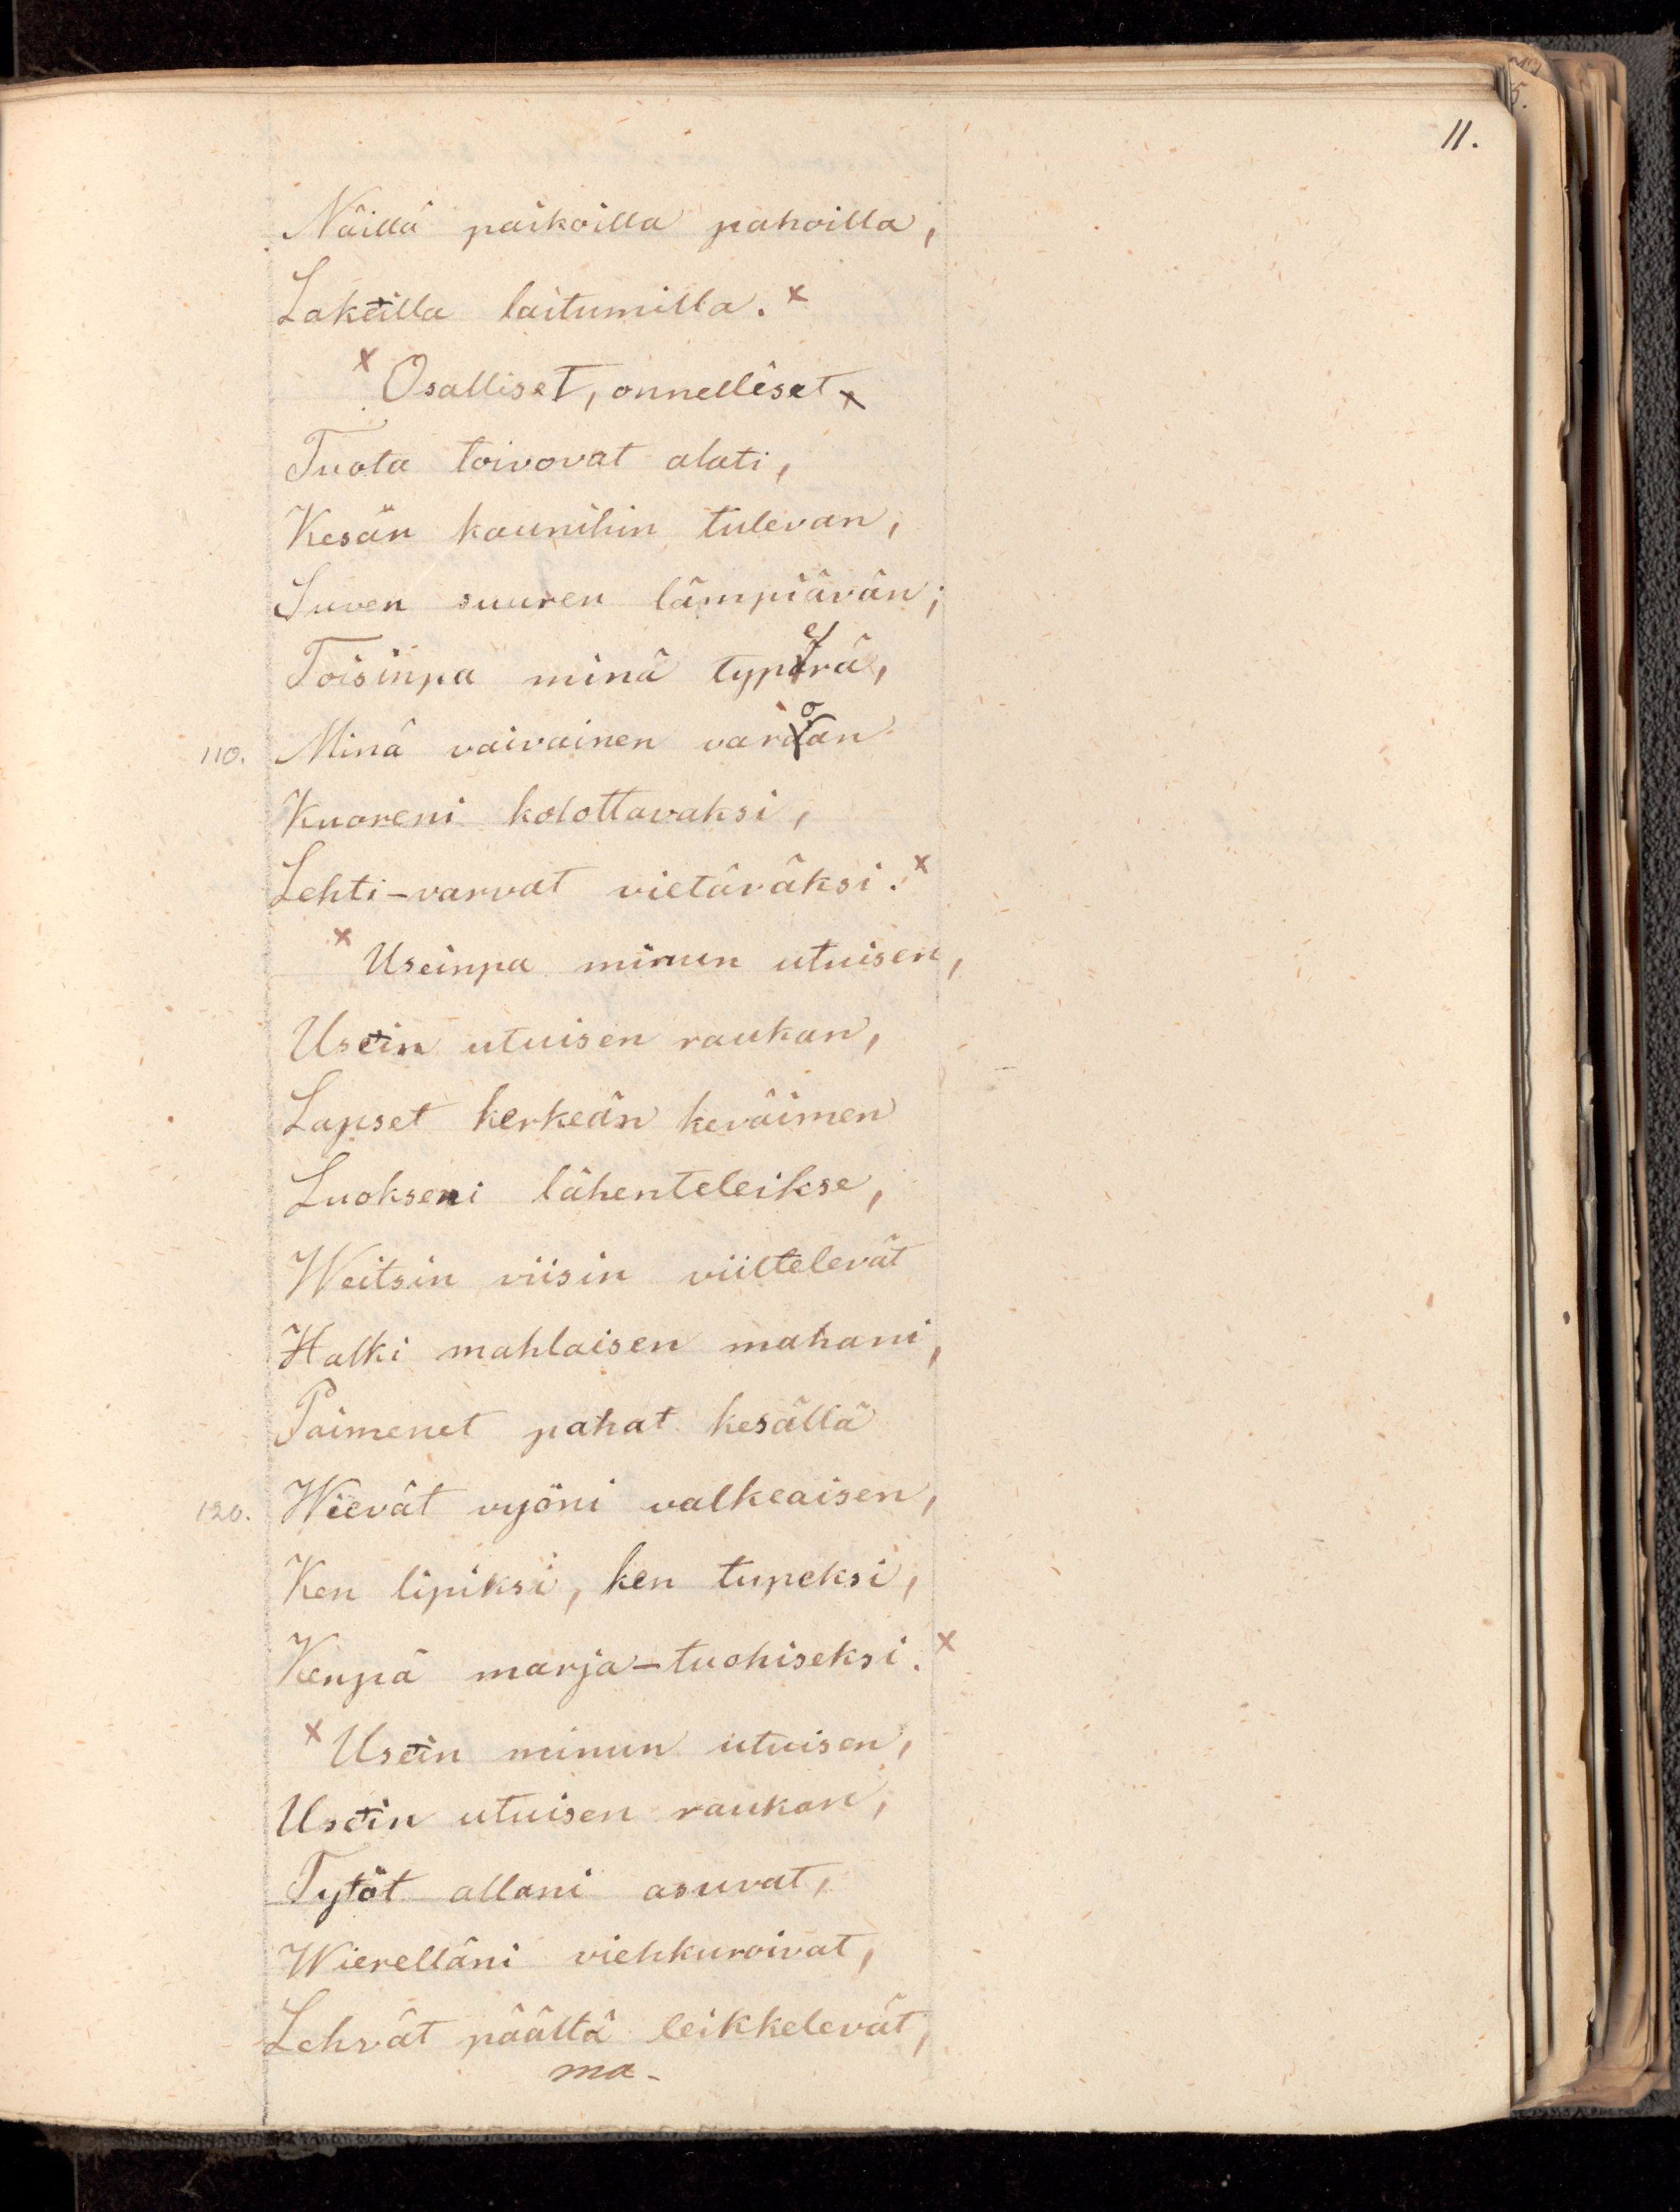 11.
Näillä paikoilla pahoilla,
Lakeilla laitumilla. x
x Osalliset, onnelliset x
Tuota toivovat alati,
Kesän kaunihin tulevan,
Suven suuren lämpiävän;
Toisinpa minä typerä,
110. Minä vaivainen varoan
Kuoreni kolottavaksi,
Lehti-varvat vietäväksi. x
x Useinpa minun utuisen,
Usein utuisen raukan,
Lapset kerkeän keväimen
Luokseni lähenteleikse,
Weitsin viisin viiltelevät
Halki mahlaisen mahani,
Paimenet pahat kesällä
120. Wievät vyöni valkeaisen,
Ken lipiksi, ken tupeksi,
Kenpä marja-tuohiseksi. x
x Usein minun utuisen,
Usein utuisen raukan,
Tytöt allani asuvat,
Wierelläni viehkuroivat,
Lehvät päältä leikkelevät,
ma-